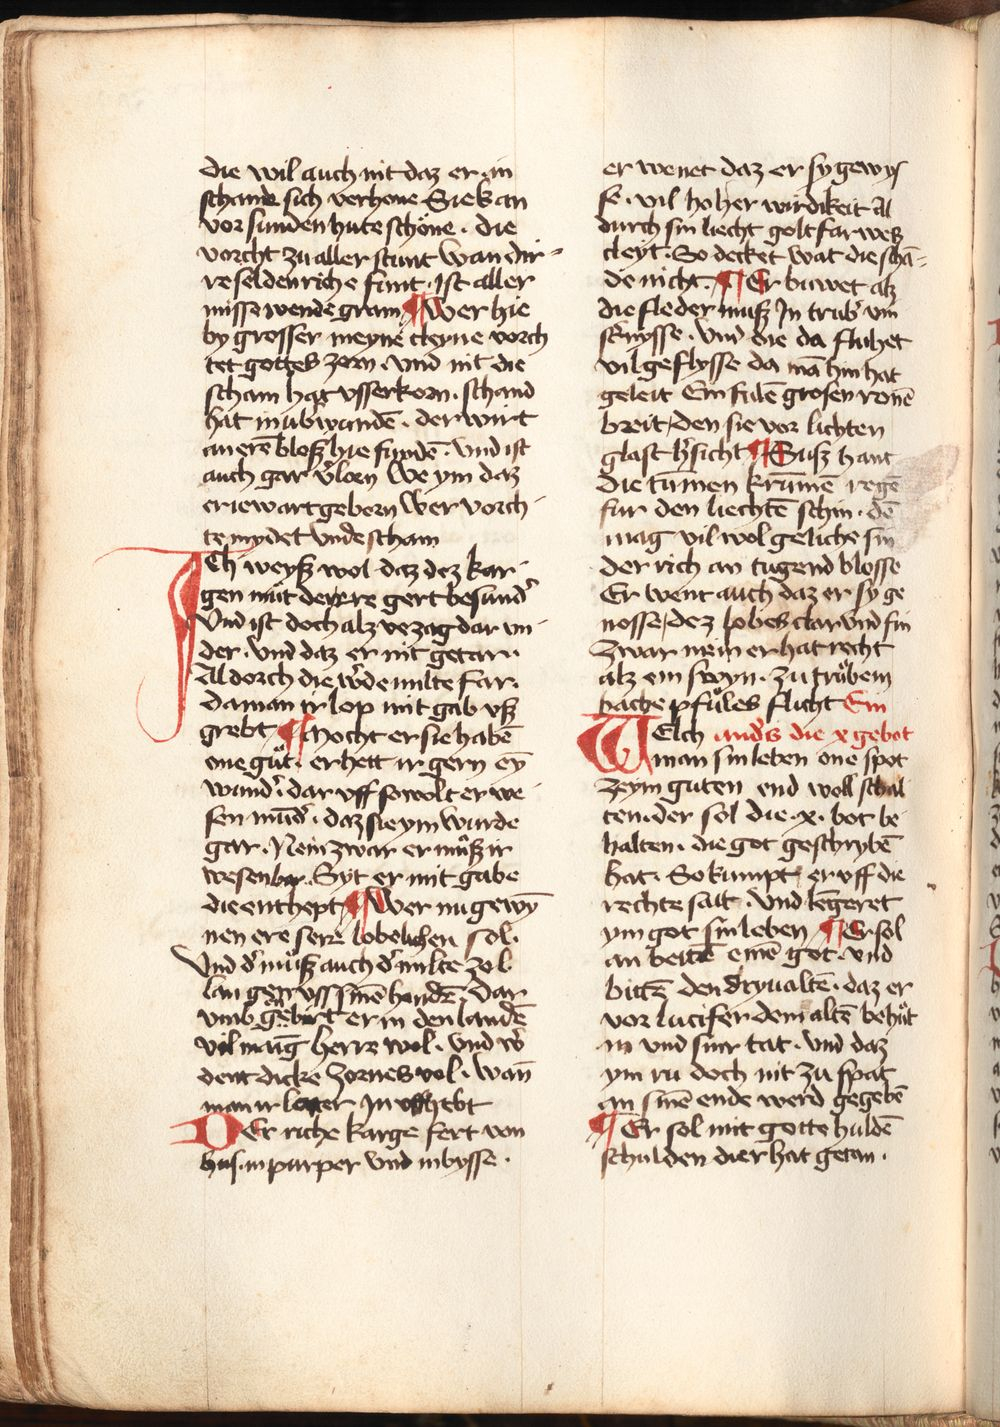 die wil auch nit daz er in
schande sich verhone Sie kan
vor sunden hute schöne · die
vorcht zu aller stunt Wan dir
re selden riche funt · Ist aller
missewende gram ¶ Wer hie
by grosser meyne cleyne vorch
tet gottes zorn · vnd nit die
scham hat vsserkorn · schand
hat in vbwunden̄ · der wirt
an erē bloß hie fundē · vnd ist
auch gar v̓lorn We ym daz
er ie wart geborn Wer vorch
te mydet vnde scham
ICh weyß wol daz dez kar
gen můt der ere gert besund̓
Vnd ist doch alz vezag dar vn
der · vnd daz er nit getar ·
Al dorch die w̓de milte far ·
da man ir lop mit gab vß
grebt ¶ Mocht er sie habē
one gůt · er hett ir gern eȳ
wund̓ · dar vff so wolt er we
sen mūd̓ · daz sie ym wurde
gar · Nein zwar er můß ir
wesen bar · Syt er mit gabe
die enthept ¶ Wer nu gewȳ
nen ere sere lobelichen sol ·
Vnd d̓ můß auch d̓ milte zol
lan gen vss sinē handē · dar
vmb gebirt er in den landē
vil manḡ herre wol · vnd w̓
dent dicke zornes vol · wan̄
man ir laster In vffhebt
DEr riche karge fert von
hus · in purper vnd in bysse ·
er wenet daz er sy gewys
se · vil hoher wirdikeit Al
durch sin liecht golt far weß
cleyt · So decket wat die schā
de nicht · ¶ Er buwet alz
die fleder muß In trub̓ vin
st̓nysse · vnd die da fluhet
vil geflysse da mā hin hat
geleit Ein fulē grosen ronē
breit / den sie vor lichten
glast v̓sicht ¶ Suß hant
die tūmen krūmē rege
fur den liechtē schin · dē
mag vil wol geliche sin
der rich an tugend blosse
Er went auch daz er sy ge
nosse / dez lobes clar vnd fin
Zwar nein er hat recht
alz ein swyn · zu trůbem
bache pfůles flucht Ein
WElch and̓s die x gebot
man sin leben one spot
Zeym guten end woll schal
ten · der sol die · x · bot be
halten · die got geschrybē
hat · So kumpt er vff die
rechte sait · vnd lengeret
ym got sin leben ¶ Er sol
an betē einē got · vnd
bittē den dryualtē · daz er
vor lucifer dem altē behůt
in vnd siner tat · vnd daz
ym ru doch nit zu spat
an sinē ende werd gegebē
¶ Er sol mit gotte huldē
schulden die er hat getan ·